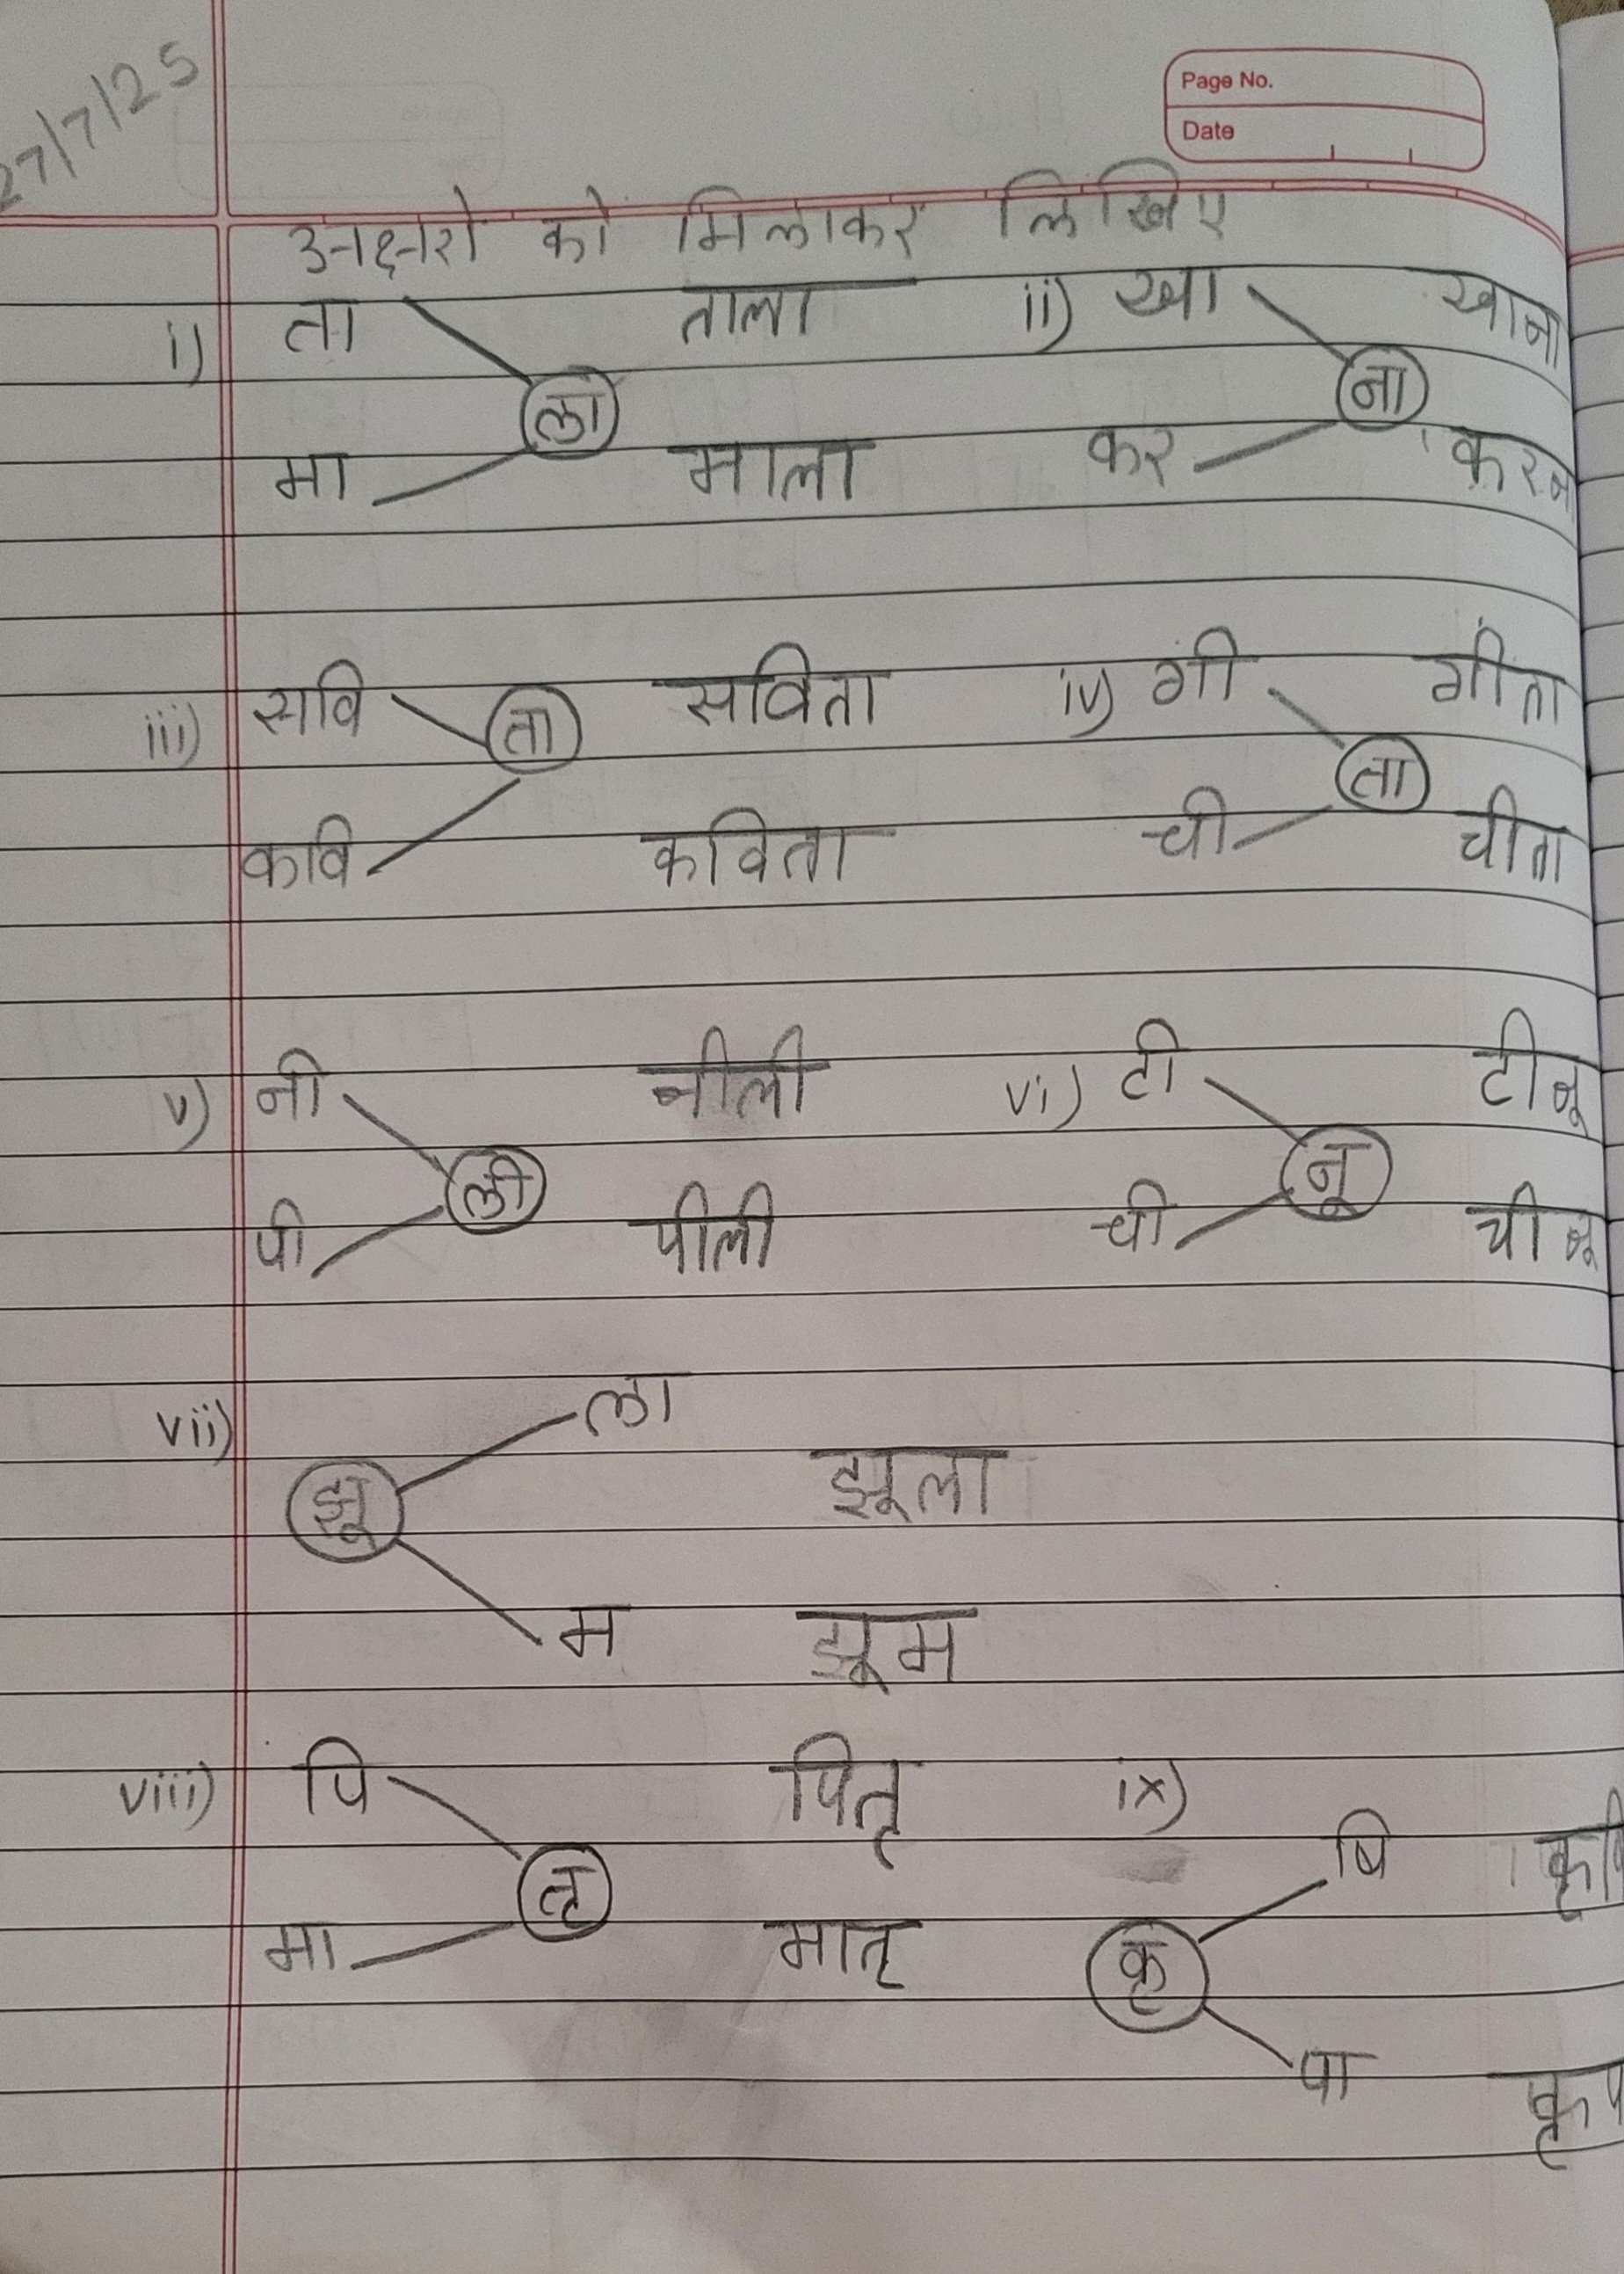 27/7/25
Page No.
Date
अक्षरो को मिलाकर लिखिए
i) ता ताला ii) खा खाना
ला ना
मा माला कर करना
iii) सवि सविता iv) गी गीता
ता ता
कवि कविता ची चीता
v) नी नीली vi) टी टीनू
ली नू
पी पीली ची चीनू
vii) ला
झू झूला
म झूम
viii) पि पितृ ix)
षि
तृ
मा मातृ कृ
पा